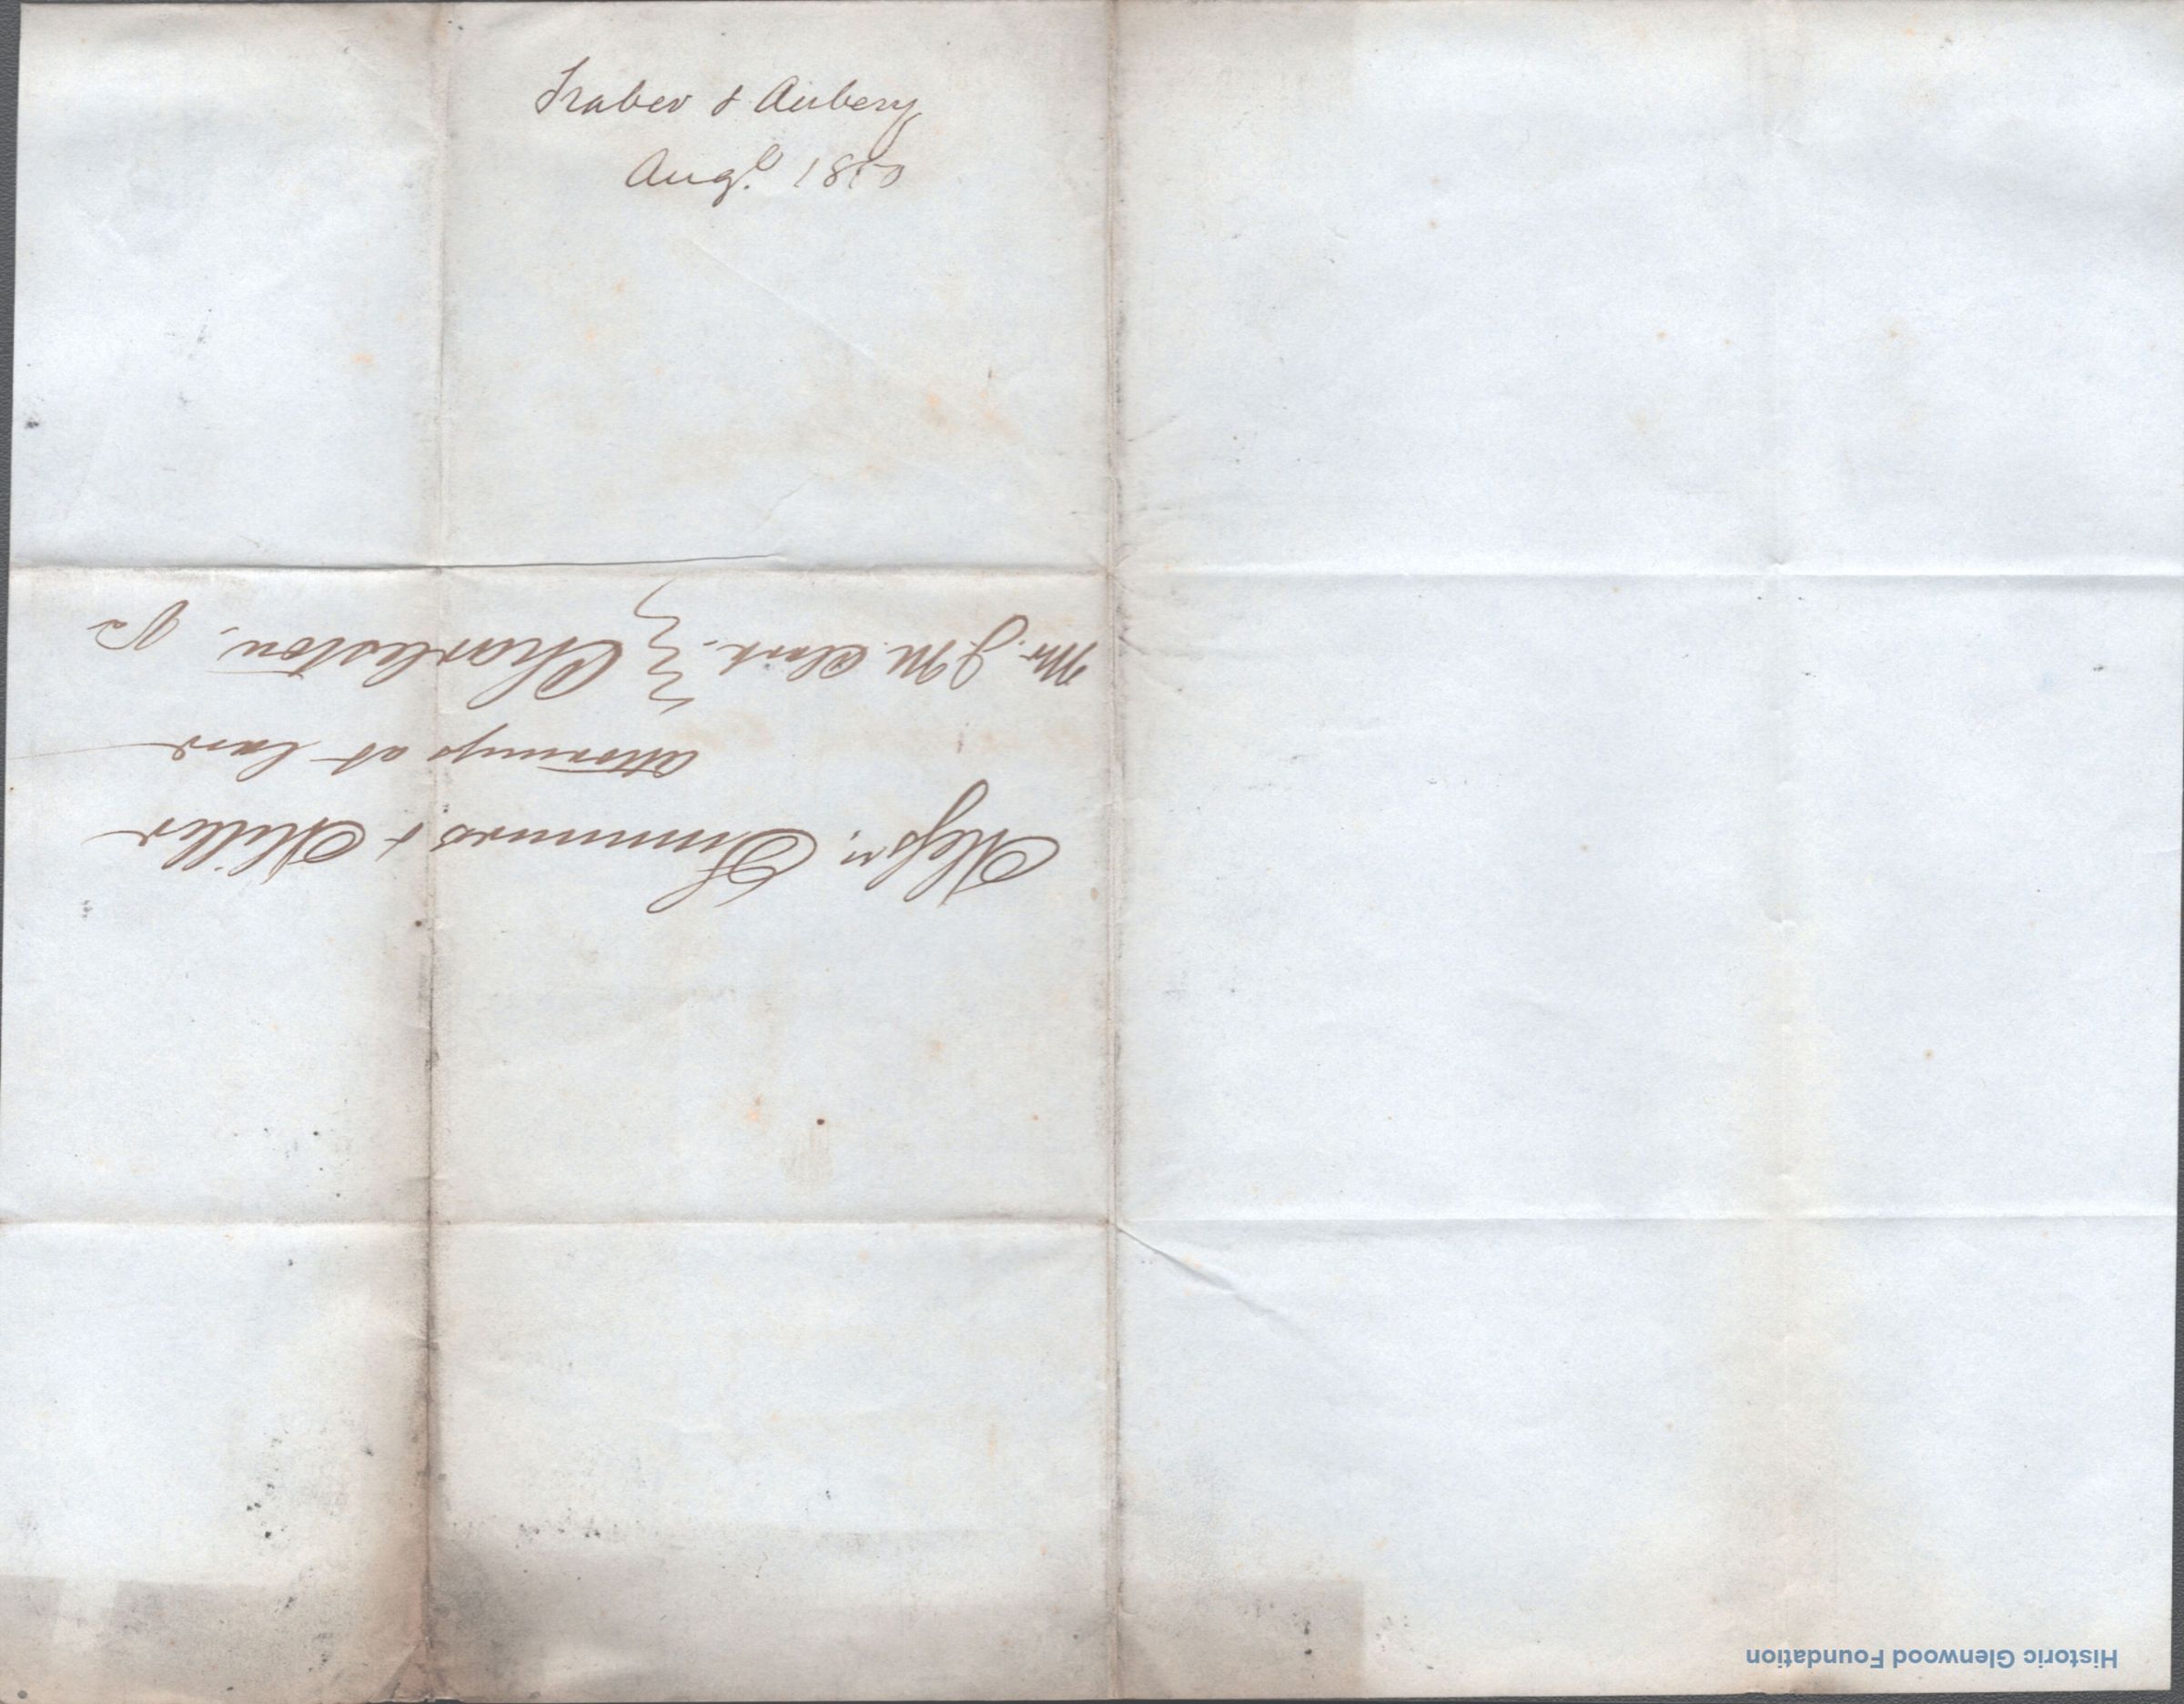 Traber & Aubery
Augt. 1850
Messrs. Summers & Miller
Attorneys at law
Mr. J. M. Clark. Charleston, Va
Historic Glenwood Foundation